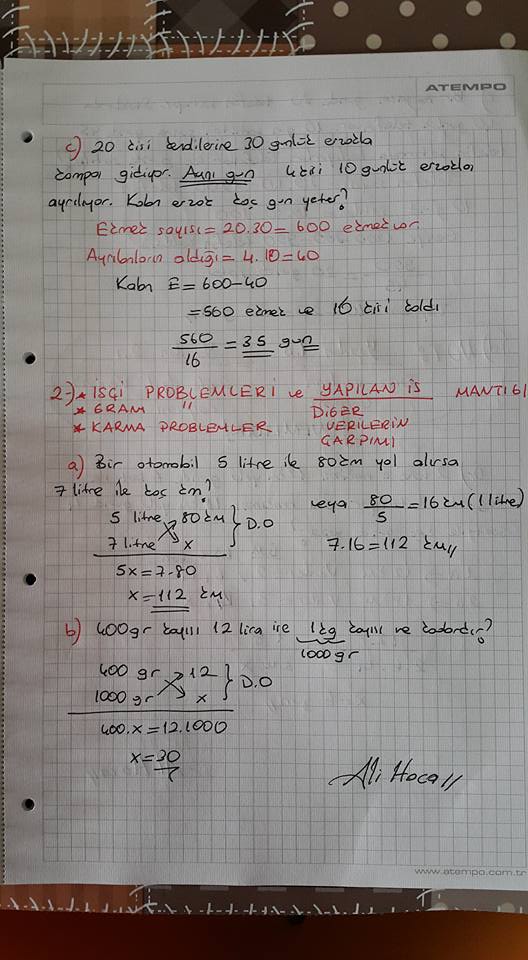 ATEMPO
c) 20 kişi kendilerine 30 günlük erzakla
kampa gidiyor. Aynı gün 4 kişi 10 günlük erzakla
ayrılıyor. Kalan erzak kaç gün yeter?
Ekmek sayısı = 20.30 = 600 ekmek var
Ayrılanların aldığı = 4.10 = 40
Kalan E = 600-40
= 560 ekmek ve 16 kişi kaldı
560/16 = 35 gün
2-) * İŞÇİ PROBLEMLERİ ve YAPILAN İŞ / DİĞER VERİLERİN ÇARPIMI MANTIĞI
* GRAM "
* KARMA PROBLEMLER
a) Bir otomobil 5 litre ile 80 km yol alırsa
7 litre ile kaç km?
5 litre 80 km } D.O
7 litre x
5x = 7.80
x = 112 km
veya 80/5 = 16 km (1 litre)
7.16 = 112 km //
b) 400 gr kayısı 12 lira ise 1 kg kayısı ne kadardır?
1000 gr
400 gr 12 } D.O
1000 gr x
400.x = 12.1000
x = 30
Ali Hoca //
www.atempo.com.tr